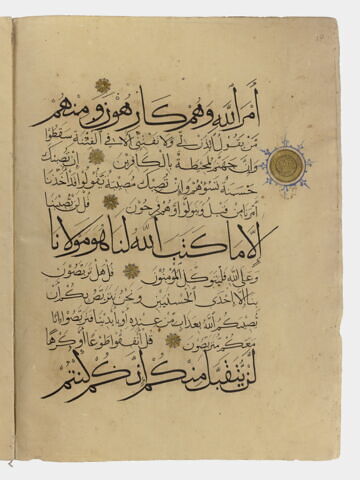 أمر الله وهم كارهون ومنهم
من يقول ائذن لي ولا تفتني ألا في الفتنة سقطوا
وإن جهنم لمحيطة بالكافرين إن تصبك
حسنة تسؤهم وإن تصبك مصيبة يقولوا قد أخذنا
أمرنا من قبل ويتولوا وهم فرحون قل لن يصيبنا
إلا ما كتب الله لنا هو مولانا
وعلى الله فليتوكل المؤمنون قل هل تربصون
بنا إلا إحدى الحسنيين ونحن نتربص بكم أن
يصيبكم الله بعذاب من عنده أو بأيدينا فتربصوا إنا
معكم متربصون قل أنفقوا طوعا أو كرها
لن يتقبل منكم إنكم كنتم